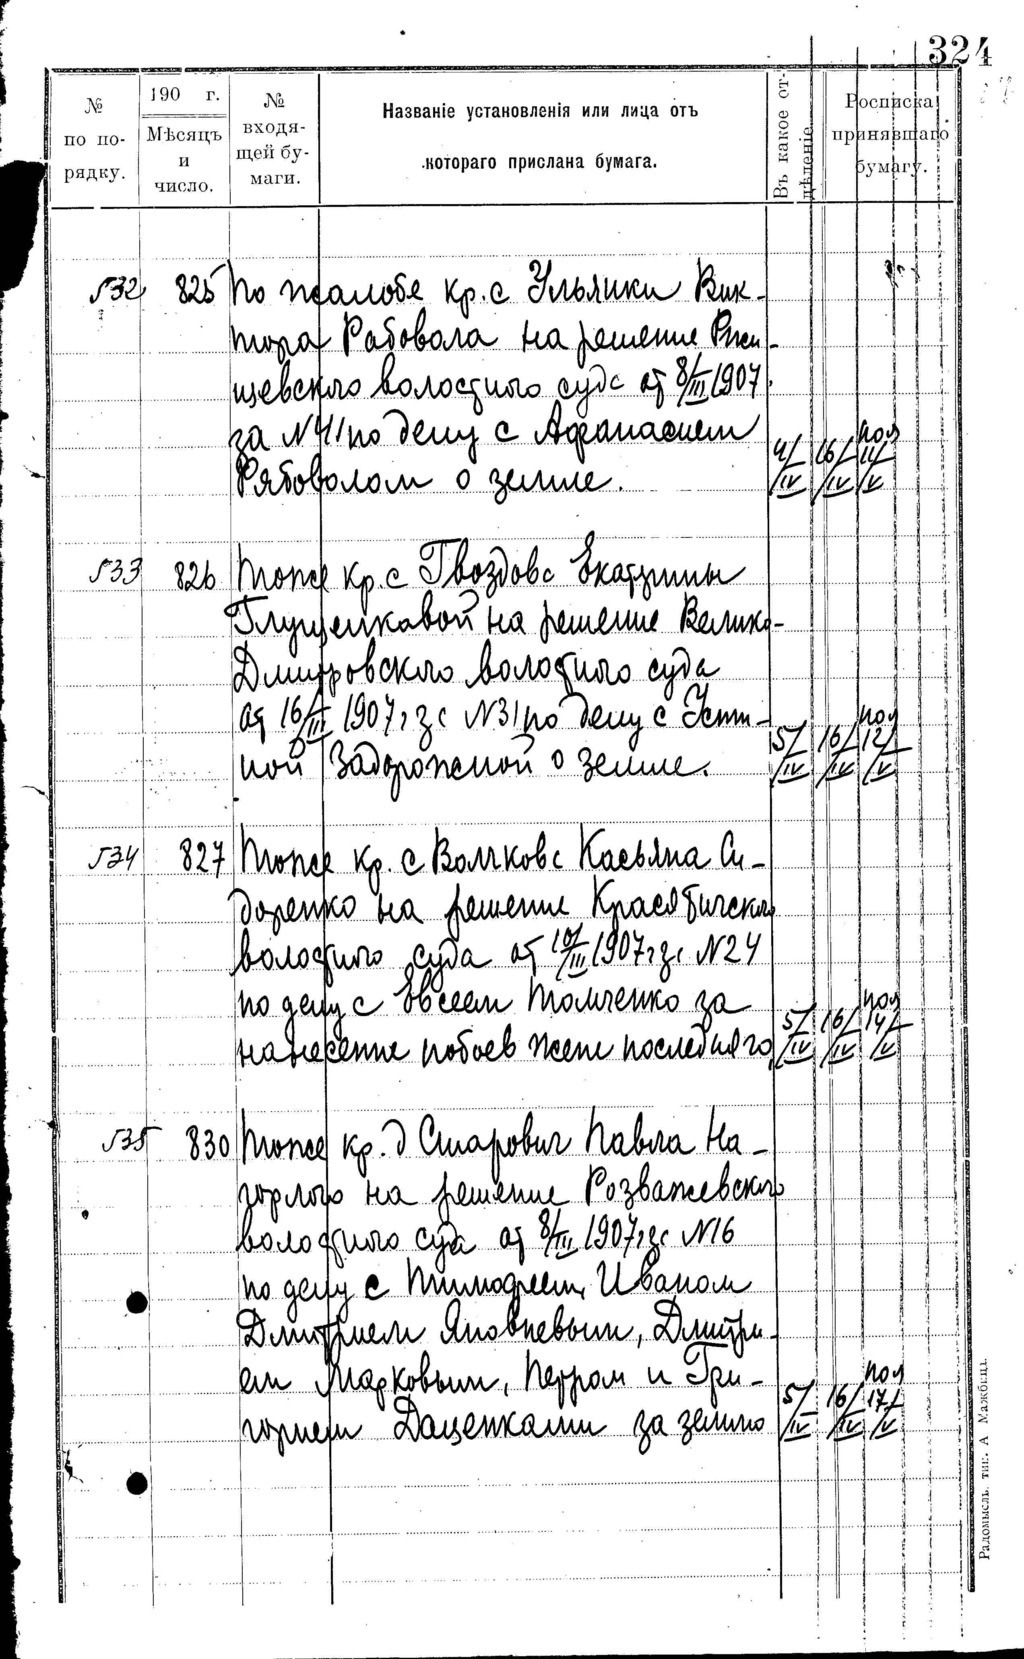 324
№ по по-рядку.
190 г.
Мѣсяцъ и число.
№ входя-щей бу-маги.
Названіе установленія или лица отъ
котораго прислана бумага.
Въ какое от-дѣленіе.
Росписка принявшаго бумагу.
532 825 По жалобе кр. с Ульяники Вик-
тора Рабовала на решение Ржи-
щевского волостного суда от 8/III 1907
за №41 по делу с Афанасием
Рябоволом о земле. 4/IV 16/IV пол 11/V
533 826 Тоже кр. с Гвоздова Екатерины
Глущенковой на решение Велико-
Дмитровского волостного суда
от 16/III 1907 г за №31 по делу с Устин-
ной Задорожной о земле. 5/IV 16/IV пол 12/V
534 827 Тоже кр. с Волчкова Касьяна Си-
доренко на решение Красятичского
волостного суда от 10/III 1907 г за №24
по делу с Евсеем Томченко за
нанесение побоев жене последняго 5/IV 16/IV пол 14/V
535 830 Тоже кр. д Старович Павла На-
горного на решение Розважевского
волостного суда от 8/III 1907 г за №16
по делу с Тимофеем, Иваном
Дмитрием Яковлевыми, Дмитри-
ем Марковым, Петром и Гри-
горием Даценками за землю 5/IV 16/IV пол 17/V
Радомысль. тип. А